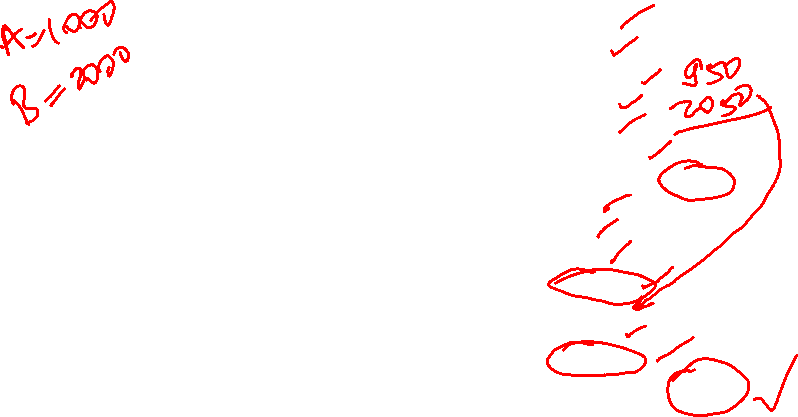 A=1000
B=2000
950
2050